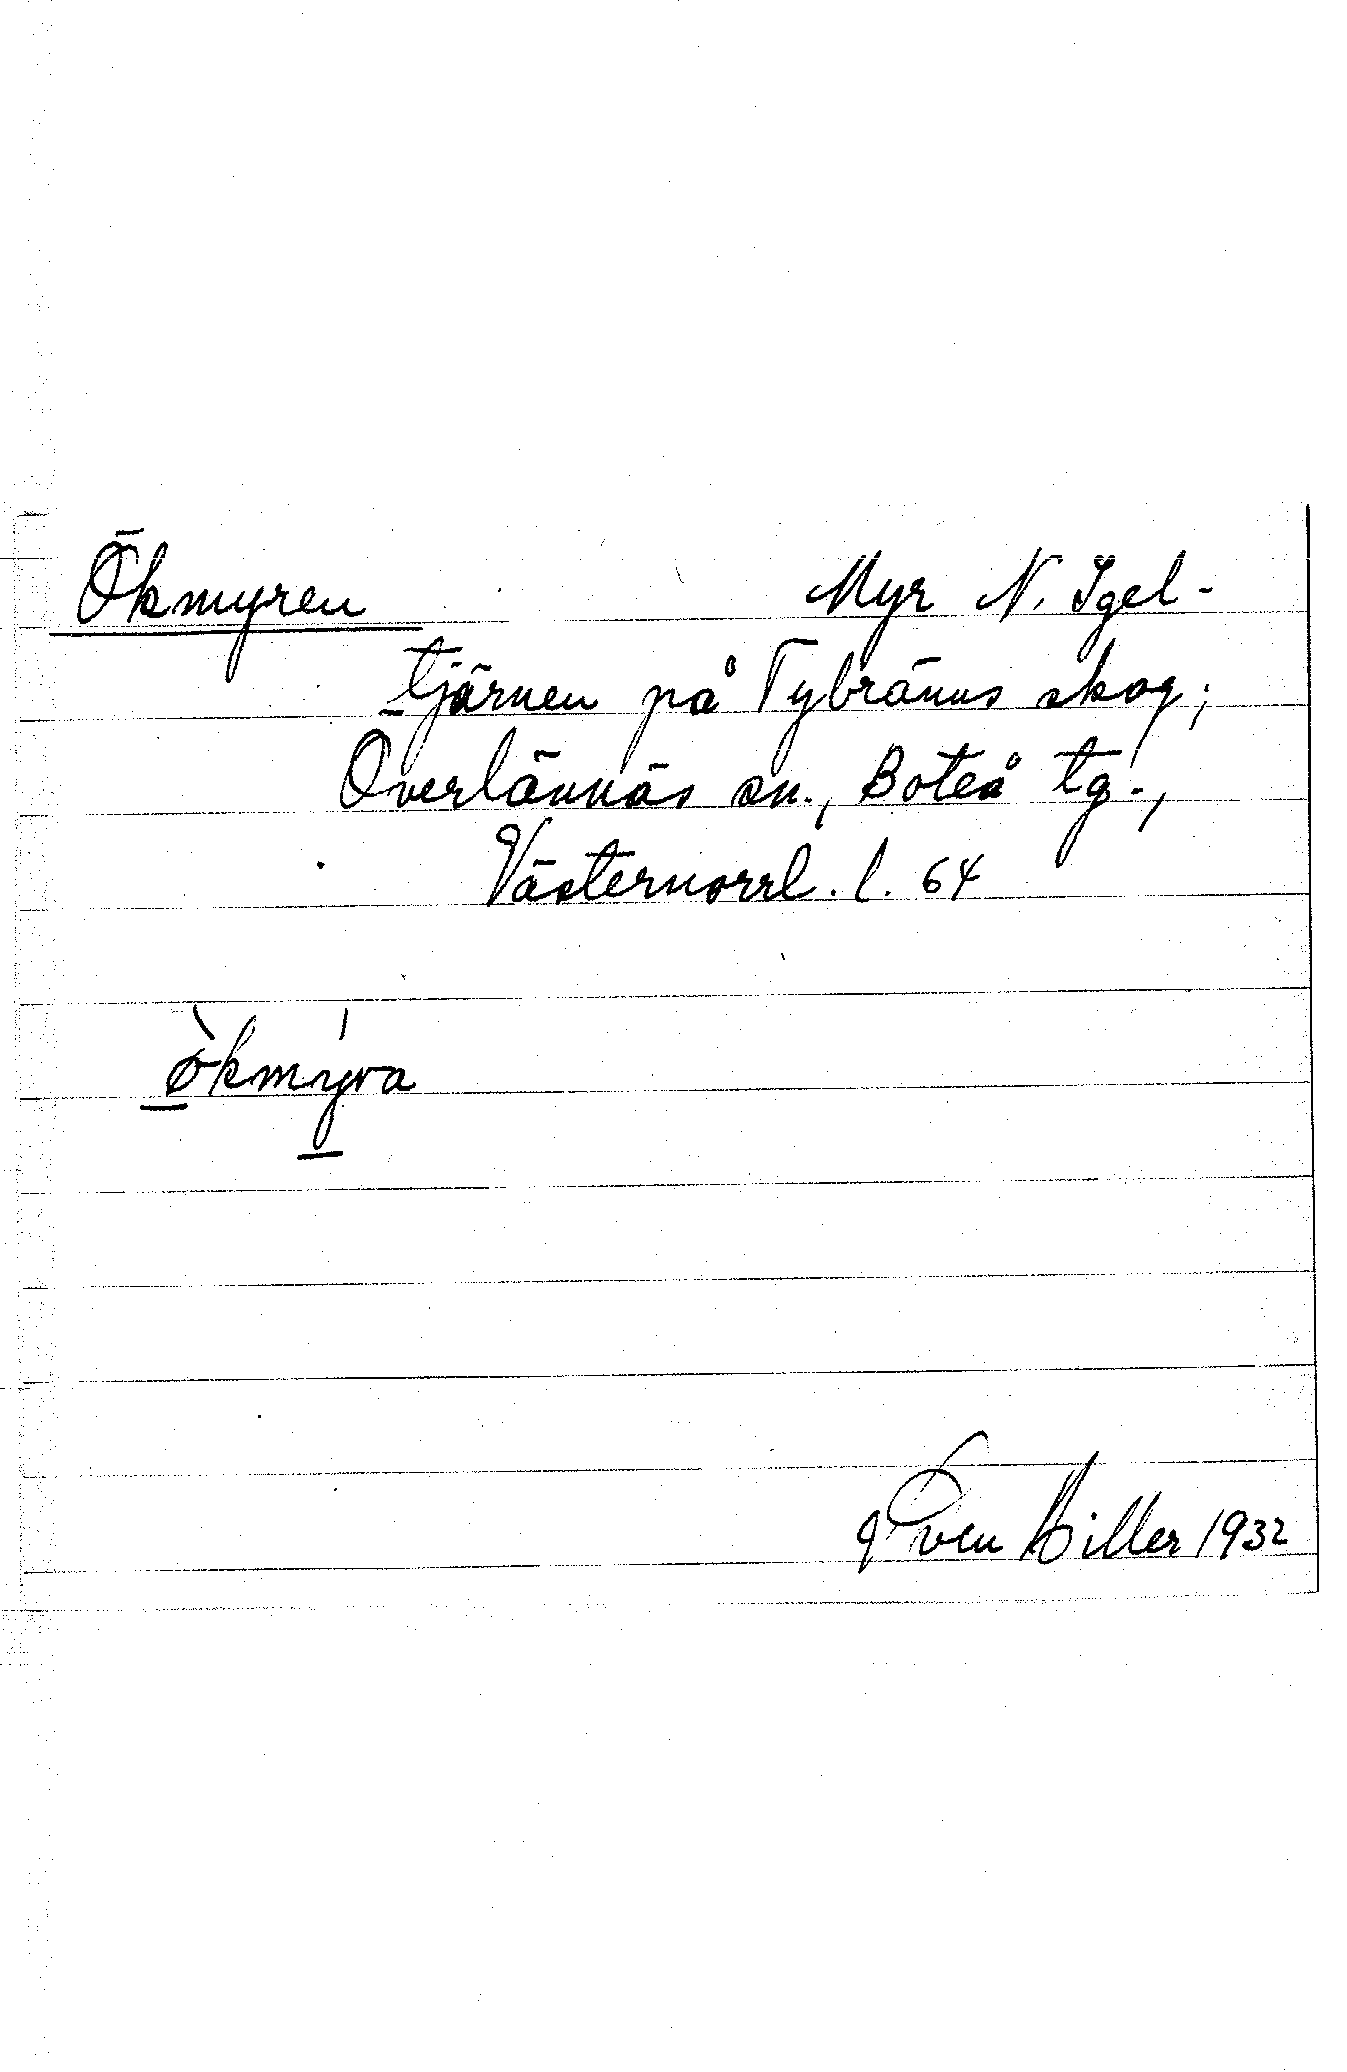 Ökmyren Myr N. Igel-
tjärnen på Tybränns skog;
Överlännäs sn., Boteå tg.,
Västernorrl. l. 64
ö̀kmýra
Sven Hiller 1932